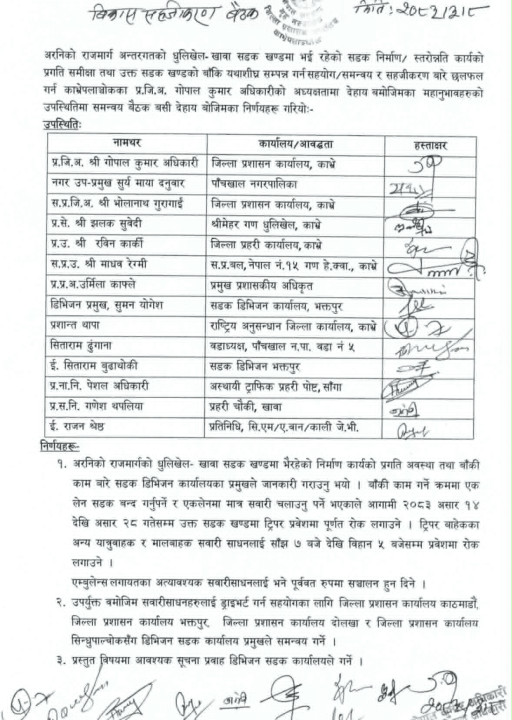 विकास सहजीकरण बैठक
मिति: २०८३/३/८
अरनिको राजमार्ग अन्तरगतको धुलिखेल- खावा सडक खण्डमा भई रहेको सडक निर्माण/ स्तरोन्नति कार्यको
प्रगति समीक्षा तथा उक्त सडक खण्डको बाँकि यथाशीघ्र सम्पन्न गर्न सहयोग/समन्वय र सहजीकरण बारे छलफल
गर्न काभ्रेपलाञ्चोकका प्र.जि.अ. गोपाल कुमार अधिकारीको अध्यक्षतामा देहाय बमोजिमका महानुभावहरुको
उपस्थितिमा समन्वय बैठक बसी देहाय बोजिमका निर्णयहरू गरियो:-
उपस्थिति:
नामथर कार्यालय/आवद्धता हस्ताक्षर
प्र.जि.अ. श्री गोपाल कुमार अधिकारी जिल्ला प्रशासन कार्यालय, काभ्रे
नगर उप-प्रमुख सुर्य माया दनुवार पाँचखाल नगरपालिका
स.प्र.जि.अ. श्री भोलानाथ गुरागाई जिल्ला प्रशासन कार्यालय, काभ्रे
प्र.से. श्री झलक सुवेदी श्रीमेहर गण धुलिखेल, काभ्रे
प्र.उ. श्री रबिन कार्की जिल्ला प्रहरी कार्यालय, काभ्रे
स.प्र.उ. श्री माधव रेग्मी स.प्र.बल,नेपाल नं.१५ गण हे.क्वा., काभ्रे
प्र.प्र.अ.उर्मिला काफ्ले प्रमुख प्रशासकीय अधिकृत
डिभिजन प्रमुख, सुमन योगेश सडक डिभिजन कार्यालय, भक्तपुर
प्रशान्त थापा राष्ट्रिय अनुसन्धान जिल्ला कार्यालय, काभ्रे
सिताराम ढुंगाना वडाध्यक्ष, पाँचखाल न.पा. वडा नं ५
ई. सिताराम बुढाथोकी सडक डिभिजन भक्तपुर
प्र.ना.नि. पेशल अधिकारी अस्थायी ट्राफिक प्रहरी पोष्ट, साँगा
प्र.स.नि. गणेश थपलिया प्रहरी चौकी, खावा
ई. राजन श्रेष्ठ प्रतिनिधि, सि.एम/ए.वान/काली जे.भी.
निर्णयहरू-
१. अरनिको राजमार्गको धुलिखेल- खावा सडक खण्डमा भैरहेको निर्माण कार्यको प्रगति अवस्था तथा बाँकी
काम बारे सडक डिभिजन कार्यालयका प्रमुखले जानकारी गराउनु भयो । बाँकी काम गर्ने क्रममा एक
लेन सडक बन्द गर्नुपर्ने र एकलेनमा मात्र सवारी चलाउनु पर्ने भएकाले आगामी २०८३ असार १४
देखि असार २८ गतेसम्म उक्त सडक खण्डमा ट्रिपर प्रवेशमा पूर्णत रोक लगाउने । ट्रिपर बाहेकका
अन्य यात्रुवाहक र मालबाहक सवारी साधनलाई साँझ ७ बजे देखि विहान ५ बजेसम्म प्रवेशमा रोक
लगाउने ।
एम्बुलेन्स लगायतका अत्यावश्यक सवारीसाधनलाई भने पूर्ववत रुपमा सञ्चालन हुन दिने ।
२. उपर्युक्त बमोजिम सवारीसाधनहरुलाई ड्राइभर्ट गर्न सहयोगका लागि जिल्ला प्रशासन कार्यालय काठमाडौं,
जिल्ला प्रशासन कार्यालय भक्तपुर, जिल्ला प्रशासन कार्यालय दोलखा र जिल्ला प्रशासन कार्यालय
सिन्धुपाल्चोकसँग डिभिजन सडक कार्यालय प्रमुखले समन्वय गर्ने ।
३. प्रस्तुत विषयमा आवश्यक सूचना प्रवाह डिभिजन सडक कार्यालयले गर्ने ।